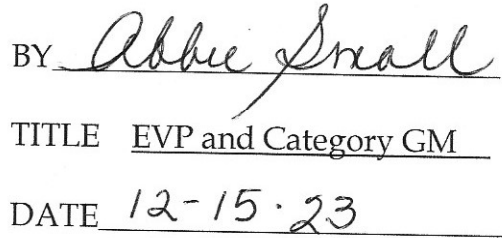 BY Abbie Small
TITLE EVP and Category GM
DATE 12-15-23